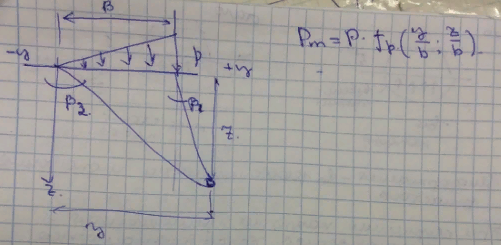 B
-y
P
+y
β2
β1
z
z
y
Pm = P · fp (y/b ; z/b)